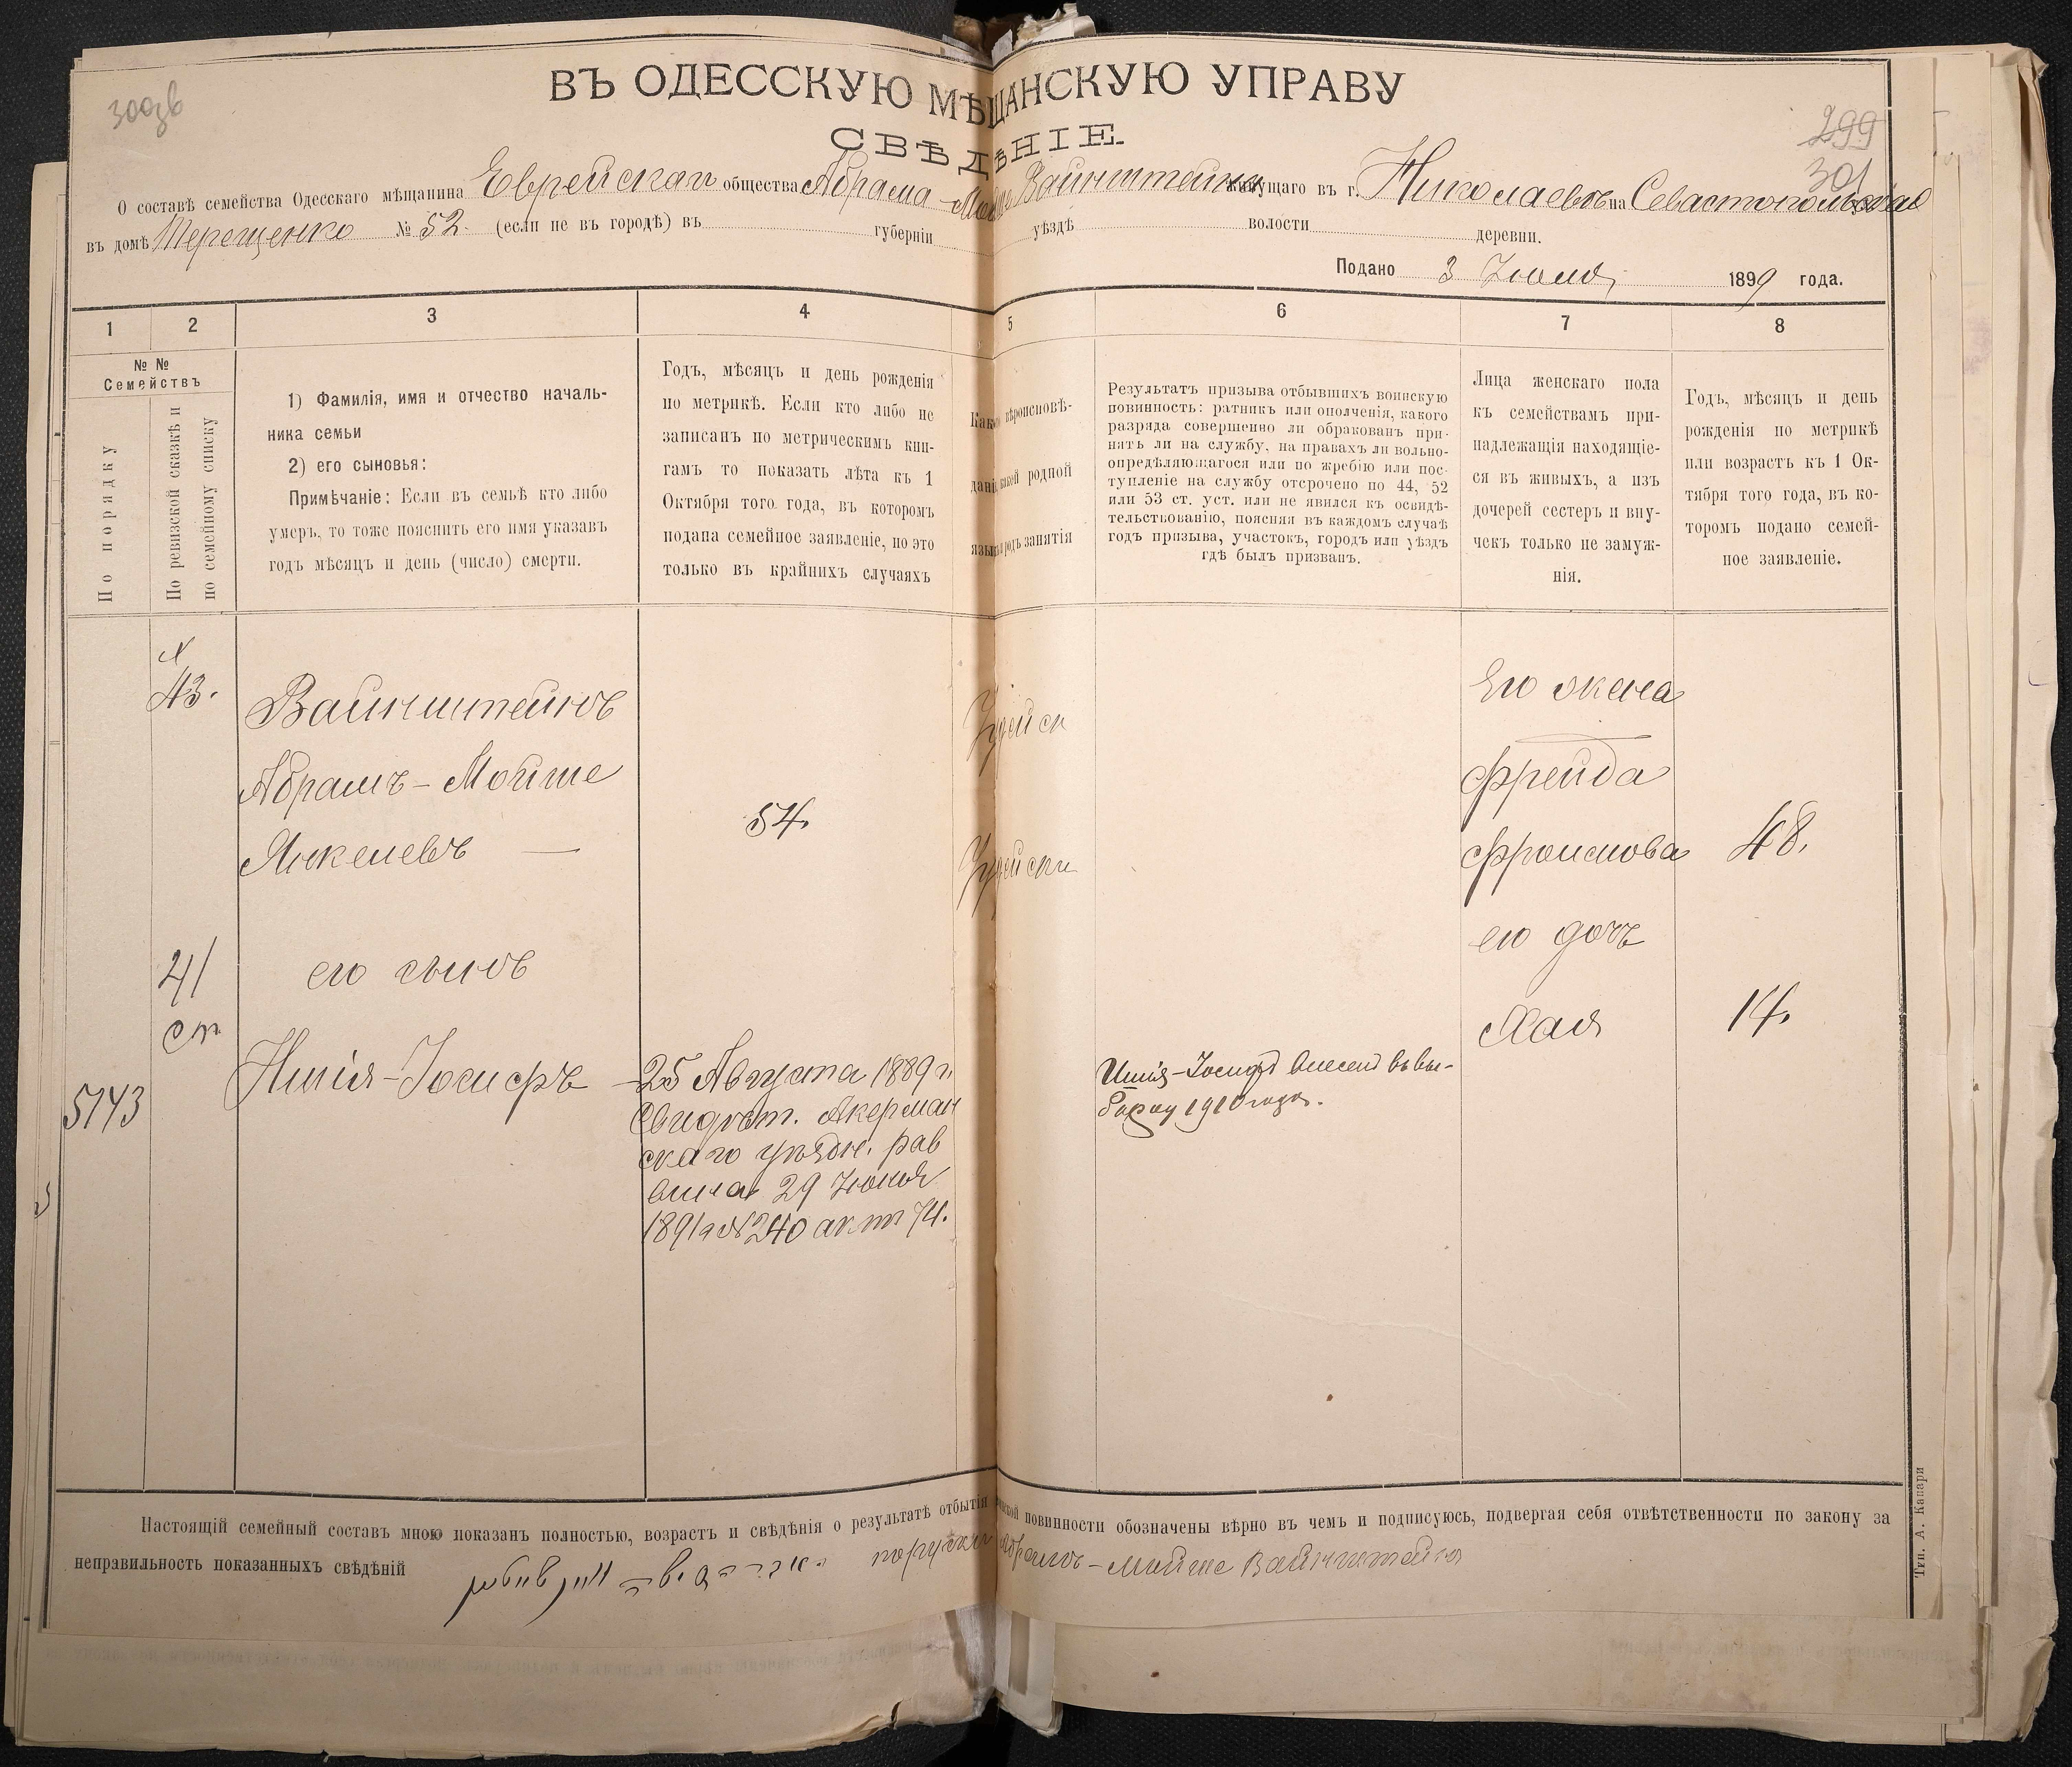 300зв
299
301
ВЪ ОДЕССКУЮ МѢЩАНСКУЮ УПРАВУ
СВѢДѢНІЕ.
О составѣ семейства Одесскаго мѣщанина Еврейскаго общества Абрама-Мойше Вайнштейна живущаго въ г. Николаевѣ на Севастопольской
въ домѣ Терещенко № 52. (если не въ городѣ) въ губерніи уѣздѣ волости деревни.
Подано 3 Іюля 1899 года.
1 2 3 4 5 6 7 8
№ №
Семействъ
По порядку
По ревизской сказкѣ и
по семейному списку
1) Фамилія, имя и отчество началь-
ника семьи
2) его сыновья:
Примѣчаніе: Если въ семьѣ кто либо
умеръ, то тоже пояснить его имя указавъ
годъ мѣсяцъ и день (число) смерти.
Годъ, мѣсяцъ и день рожденія
по метрикѣ. Если кто либо не
записанъ по метрическимъ кни-
гамъ то показать лѣта къ 1
Октября того года, въ которомъ
подана семейное заявленіе, но это
только въ крайнихъ случаяхъ
Какого вѣроисповѣ-
данія, какой родной
языкъ и родъ занятія
Результатъ призыва отбывшихъ воинскую
повинность: ратникъ или ополченія, какого
разряда совершенно ли обракованъ при-
нятъ ли на службу, на правахъ ли вольно-
опредѣляющагося или по жребію или пос-
тупленіе на службу отсрочено по 44, 52
или 53 ст. уст. или не явился къ освидѣ-
тельствованію, поясняя въ каждомъ случаѣ
годъ призыва, участокъ, городъ или уѣздъ
гдѣ былъ призванъ.
Лица женскаго пола
къ семействамъ при-
надлежащія находящіе-
ся въ живыхъ, а изъ
дочерей сестеръ и вну-
чекъ только не замуж-
нія.
Годъ, мѣсяцъ и день
рожденія по метрикѣ
или возрастъ къ 1 Ок-
тября того года, въ ко-
торомъ подано семей-
ное заявленіе.
№
43.
Вайнштейнъ
Абрамъ-Мойше
Янкелевъ —
54.
Іудейск
Іудейски
Его жена
Фрейда
Фроимова
48.
его дочь
Хая
14.
41
ст
его сынъ
5143
Ишія-Іосифъ
—25 Августа 1889 г.
Свидѣт. Акерман
скаго уѣздн. рав
вина 29 Іюня
1891 г № 240 акт 74.
Ишія-Іосифъ внесенъ въ вы-
борку 1910 года.
Настоящій семейный составъ мною показанъ полностью, возрастъ и свѣдѣнія о результатѣ отбытія воинской повинности обозначены вѣрно въ чемъ и подписуюсь, подвергая себя отвѣтственности по закону за
неправильность показанныхъ свѣдѣній
порусски Абрамъ-Мойше Вайнштейнъ
Тип. А. Капари